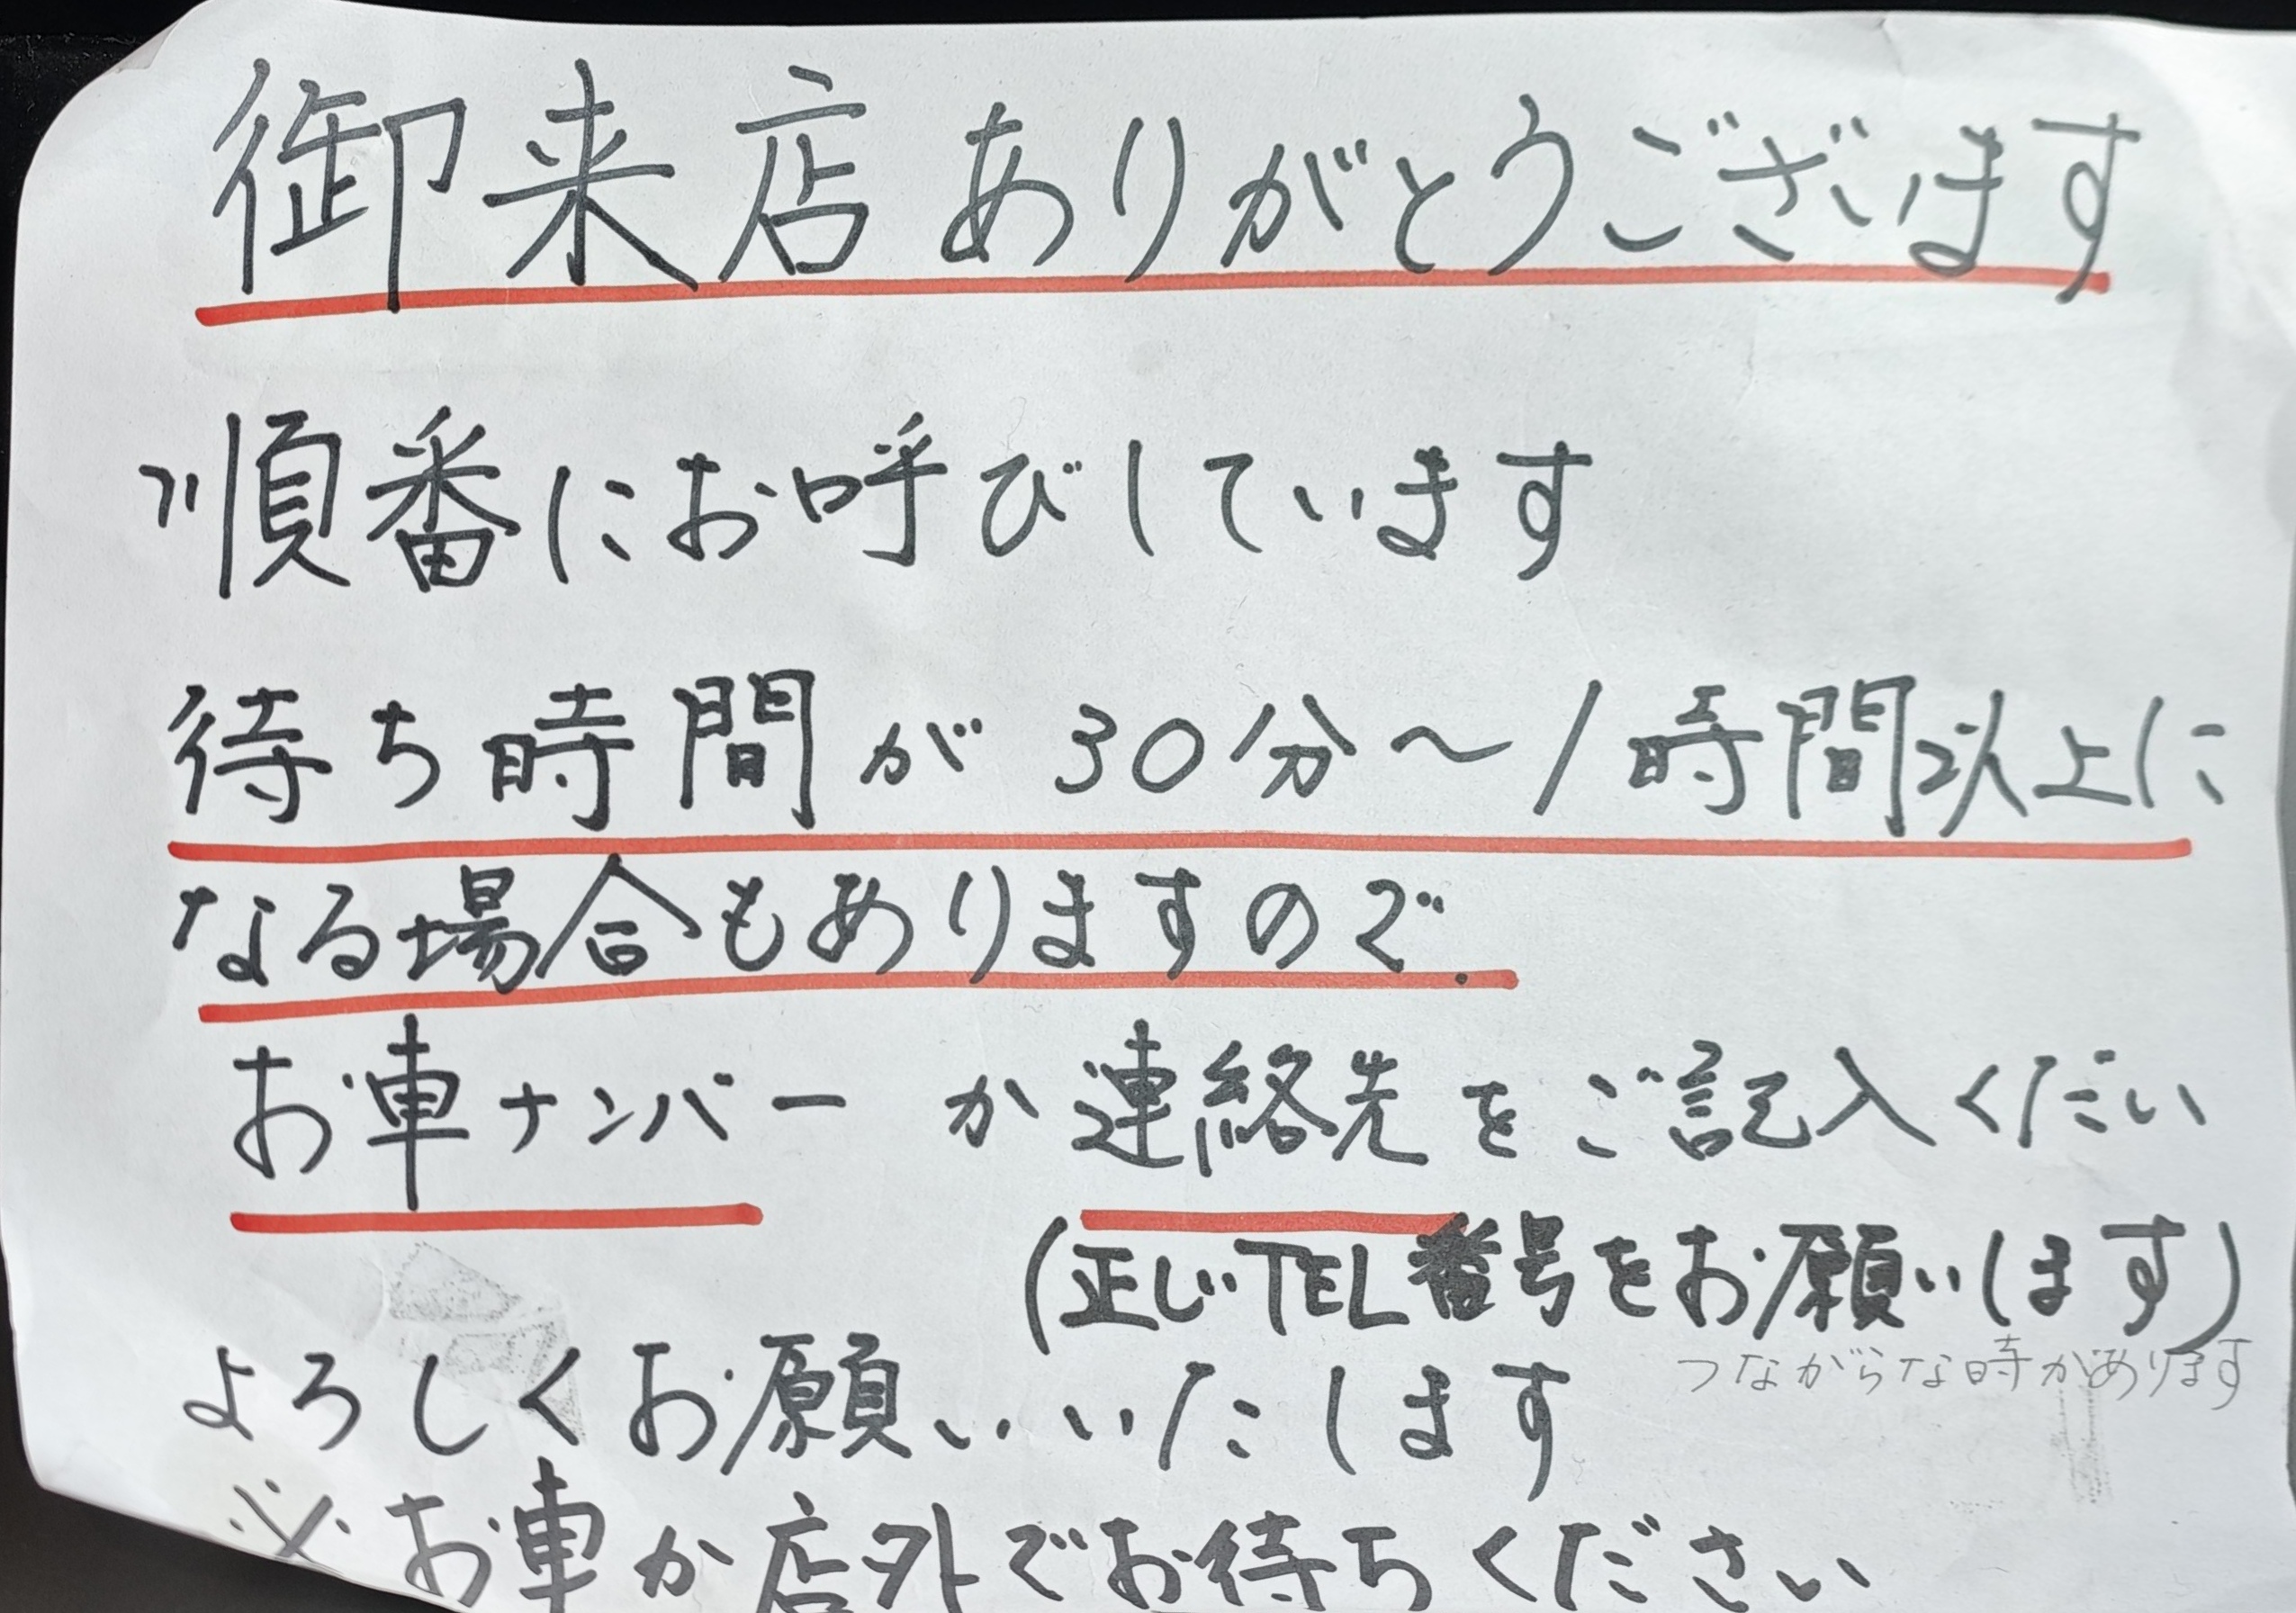 御来店ありがとうございます
順番にお呼びしています
待ち時間が 30分～1時間以上に
なる場合もありますので、
お車ナンバー か連絡先をご記入くだい
(正しいTEL番号をお願いします)
つながらな時があります
よろしくお願いいたします
※お車か店外でお待ちください